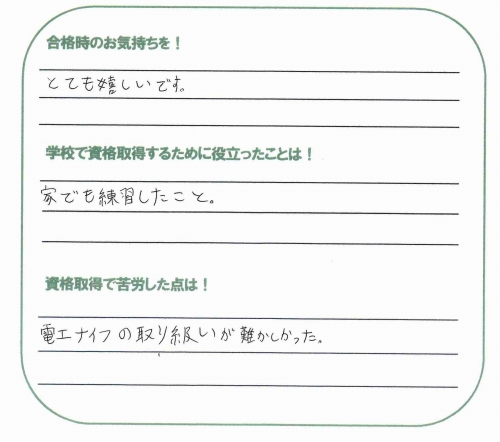 合格時のお気持ちを！
とても嬉しいです。
学校で資格取得するために役立ったことは！
家でも練習したこと。
資格取得で苦労した点は！
電工ナイフの取り級いが難かしかった。